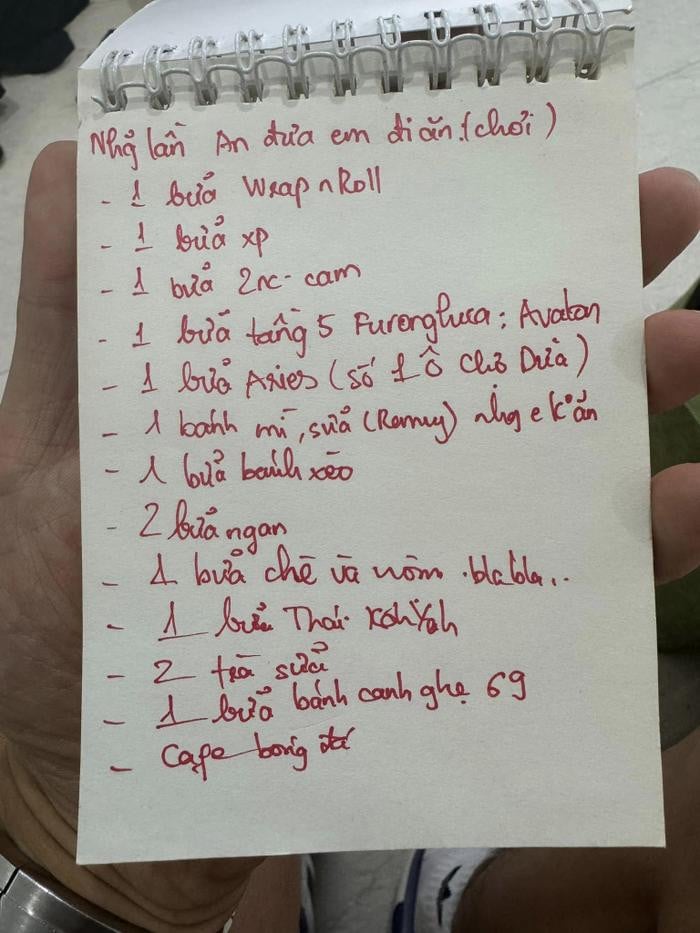 Nhg lần An đưa em đi ăn.(chơi)
- 1 bữa Wrap n Roll
- 1 bữa xp
- 1 bữa 2nc- cam
- 1 bữa tầng 5 : Avatar
- 1 bữa Aries (số 1 Ô Chợ Dừa)
- 1 bánh mì, sữa (Remy) nhg e k° ăn
- 1 bữa bánh xèo
- 2 bữa ngan
- 1 bữa chè và nộm .blabla..
- 1 bữa Thái KohYah
- 2 trà sữa
- 1 bữa bánh canh ghẹ 69
- Cafe bóng đá